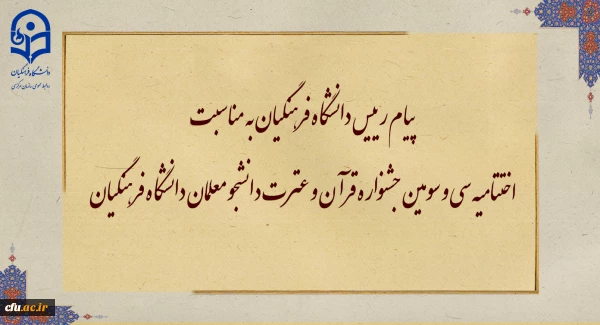 دانشگاه فرهنگیان
روابط عمومی سازمان مرکزی
پیام رییس دانشگاه فرهنگیان به مناسبت
اختتامیه سی و سومین جشنواره قرآن و عترت دانشجو معلمان دانشگاه فرهنگیان
cfu.ac.ir